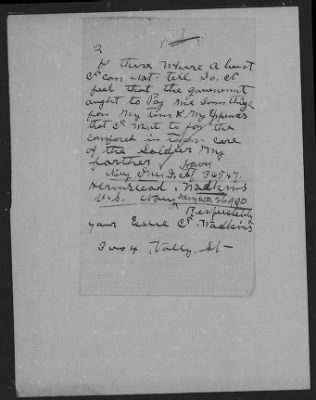 2
& there where a host
con not tell So. I
feel that the goverment
aught to Pay me Something
for My time & My Expences
that I went to for the
comford in care
of the Soldier My
farther Navy
36547.
Hermstead. Wadkins
U.S. Navy 26990
Respectfully
your Essie C. Wadkins
Vally. St